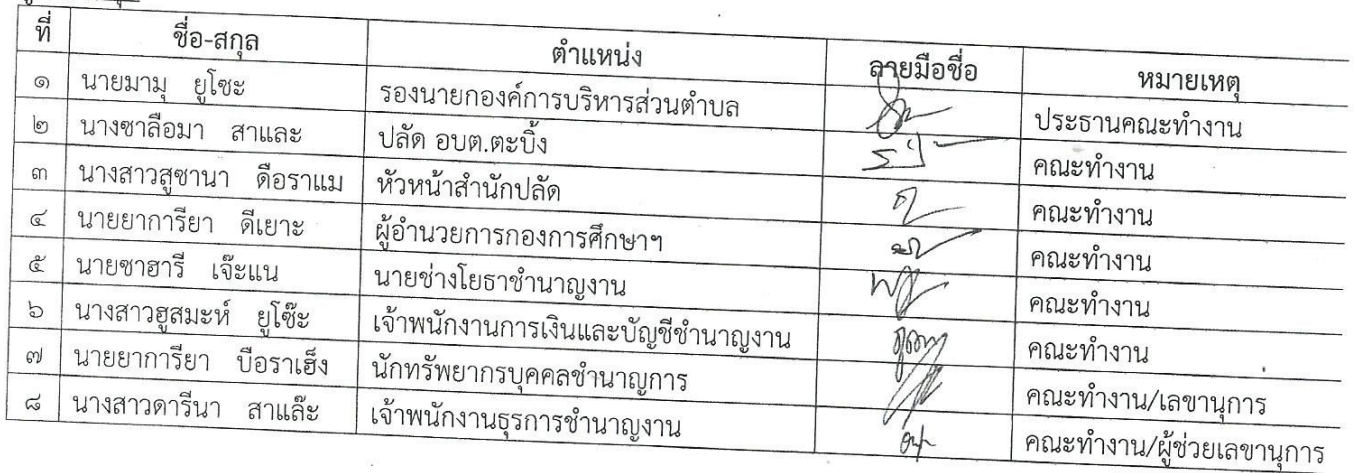 ที่ ชื่อ-สกุล ตำแหน่ง ลายมือชื่อ หมายเหตุ
๑ นายมามุ ยูโซะ รองนายกองค์การบริหารส่วนตำบล ประธานคณะทำงาน
๒ นางซาลือมา สาและ ปลัด อบต.ตะบิ้ง คณะทำงาน
๓ นางสาวสูซานา ดือราแม หัวหน้าสำนักปลัด คณะทำงาน
๔ นายยาการียา ดีเยาะ ผู้อำนวยการกองการศึกษาฯ คณะทำงาน
๕ นายซาฮารี เจ๊ะแน นายช่างโยธาชำนาญงาน คณะทำงาน
๖ นางสาวฮูสมะห์ ยูโซ๊ะ เจ้าพนักงานการเงินและบัญชีชำนาญงาน คณะทำงาน
๗ นายยาการียา บือราเฮ็ง นักทรัพยากรบุคคลชำนาญการ คณะทำงาน/เลขานุการ
๘ นางสาวดารีนา สาแล๊ะ เจ้าพนักงานธุรการชำนาญงาน คณะทำงาน/ผู้ช่วยเลขานุการ